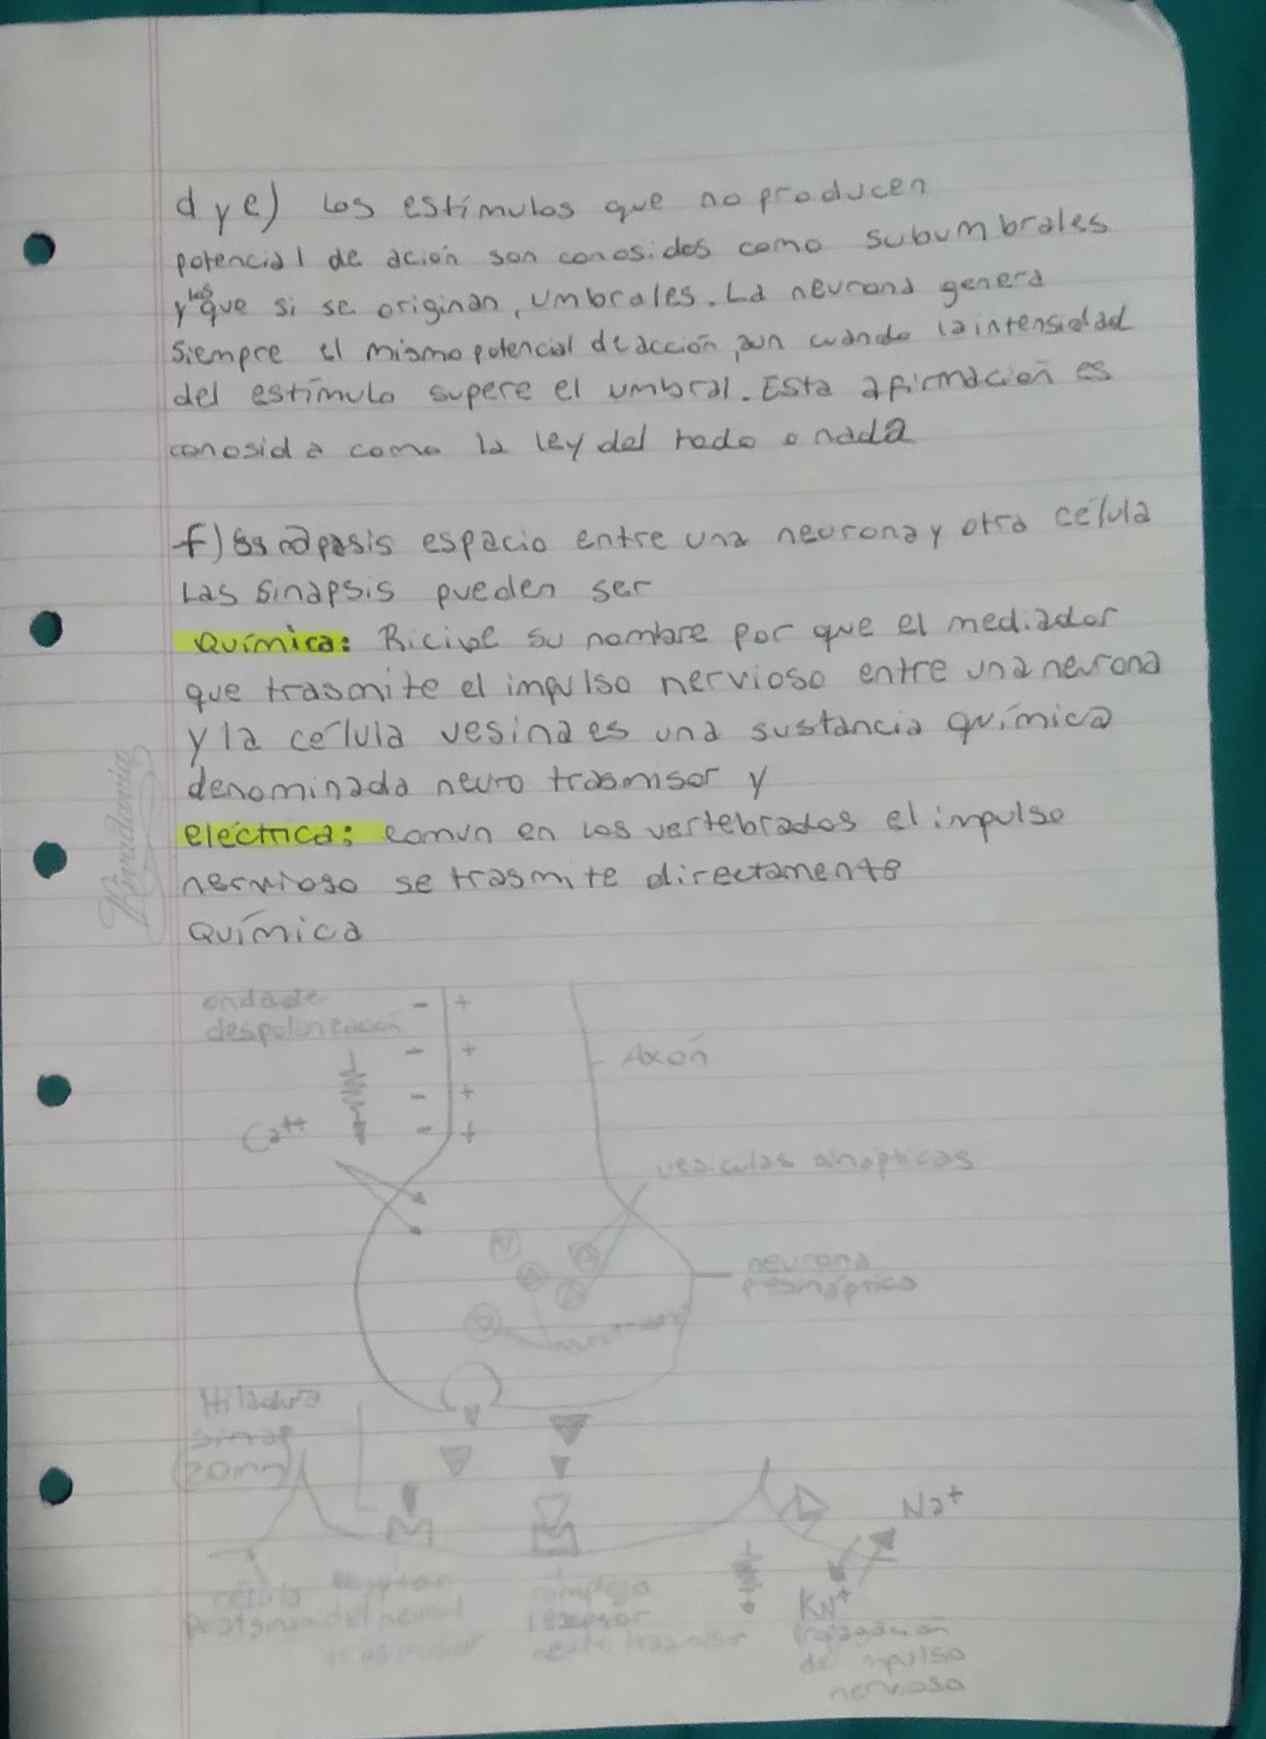 d y e) Los estímulos que no producen
potencial de ación son conosidos como subumbrales
y los que si se originan, umbrales. La neurona genera
siempre el mismo potencial de acción, aun cuando la intensidad
del estímulo supere el umbral. Esta afirmación es
conosida como la ley del todo o nada
f) espacio entre una neurona y otra célula
Las sinapsis pueden ser
Química: Ricive su nombre por que el mediador
que trasmite el impulso nervioso entre una neurona
y la célula vesina es una sustancia química
denominada neuro trasmisor y
eléctrica: común en los vertebrados el impulso
nervioso se trasmite directamente
Química
Rivadavia
onda de
- +
Axón
- +
- +
Ca++
- +
vesiculas sinapticas
neurona
(20nm)
Na+
célula
complejo
receptor
neuro trasmisor
de impulso
nervioso